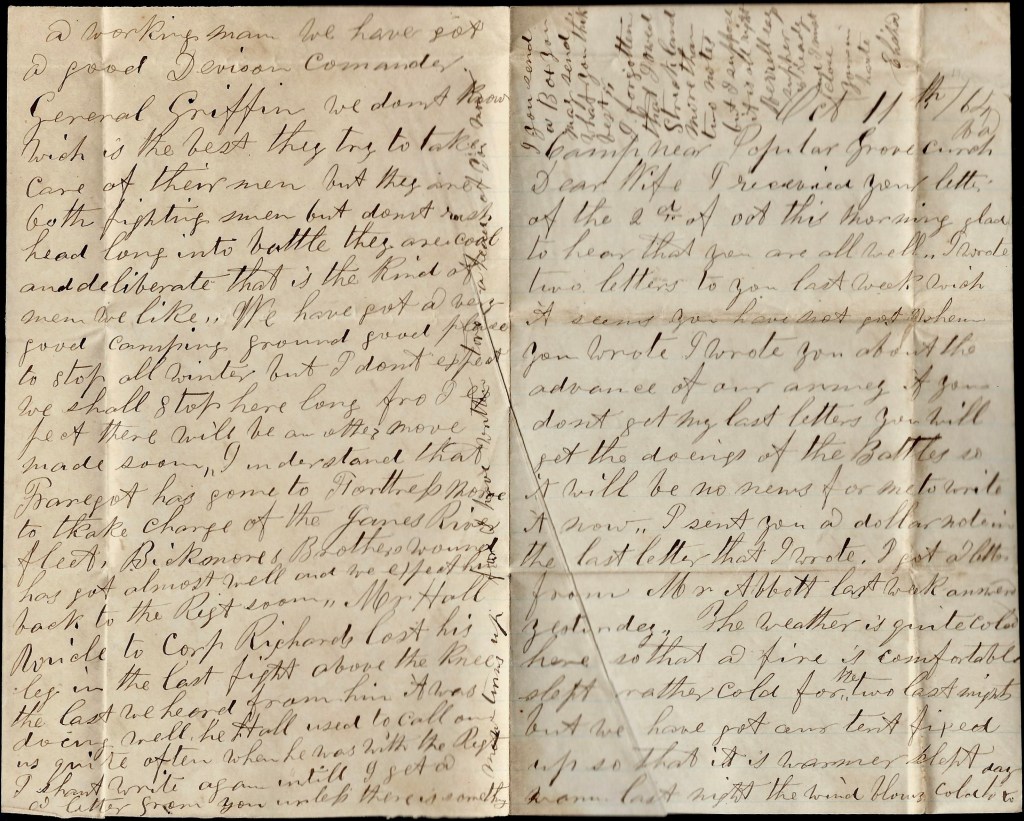 Oct 11th / 64
Camp near Popular Grove curch
Va
Dear Wife I receivied your letter
of the 2d of oct this morning glad
to hear that you are all well,, I wrote
two letters to you last week wich
it seems you have not got when
you wrote I wrote you about the
advance of our armey if you
dont get my last letters you will
get the doeings of the Battles so
it will be no news for me to write
it now,, I sent you a dollar note in
the last letter that I wrote. I got a letter
from Mr Abbott last week answerd
yesterdey,, The weather is quite cold
here so that a fire is comfortable
slept rrather cold for the two last nights
but we have got our tent fixed
up so that it is warmer slept
warm last night the wind blows cold to
day
if you send
a Box you
may send
what you think
best,,
I forgotten
that I owed
Strickland
more than
two notes
but I suppose
it is all right
supper
is ready
so I must
close
yours in
haste
a working man we have got
a good Devison Comander
General Griffin we dont know
wich is the best they try to take
care of their men but they are
both fighting men but dont rush
head long into battle they are cool
and deliberate that is the kind of
men we like,, We have got a very
good camping ground good place
to stop all winter but I dont expect
we shall stop here long fro I ex
pect there will be an other move
made soon,, I understand that
Fraregot has gone to Florttress Monroe
to thake charge of the James River
fleet, Bickmores Brothers wound
has got almost well and we expect him
back to the Rigt soon,, Mr Hall
Uncle to Corp Richards lost his
leg in the last fight above the knee
the last we heard from him it was
doeing well. he Hall used to call on
us quite often when he was with the Rigt
I shant write again intill I get a
a letter from you unless there is something